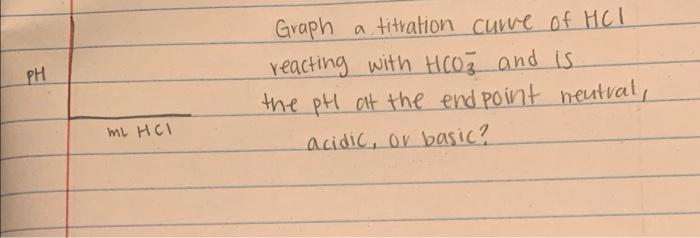 Graph a titration curve of HCl
reacting with HCO₃⁻ and is
the pH at the endpoint neutral,
acidic, or basic?
pH
mL HCl